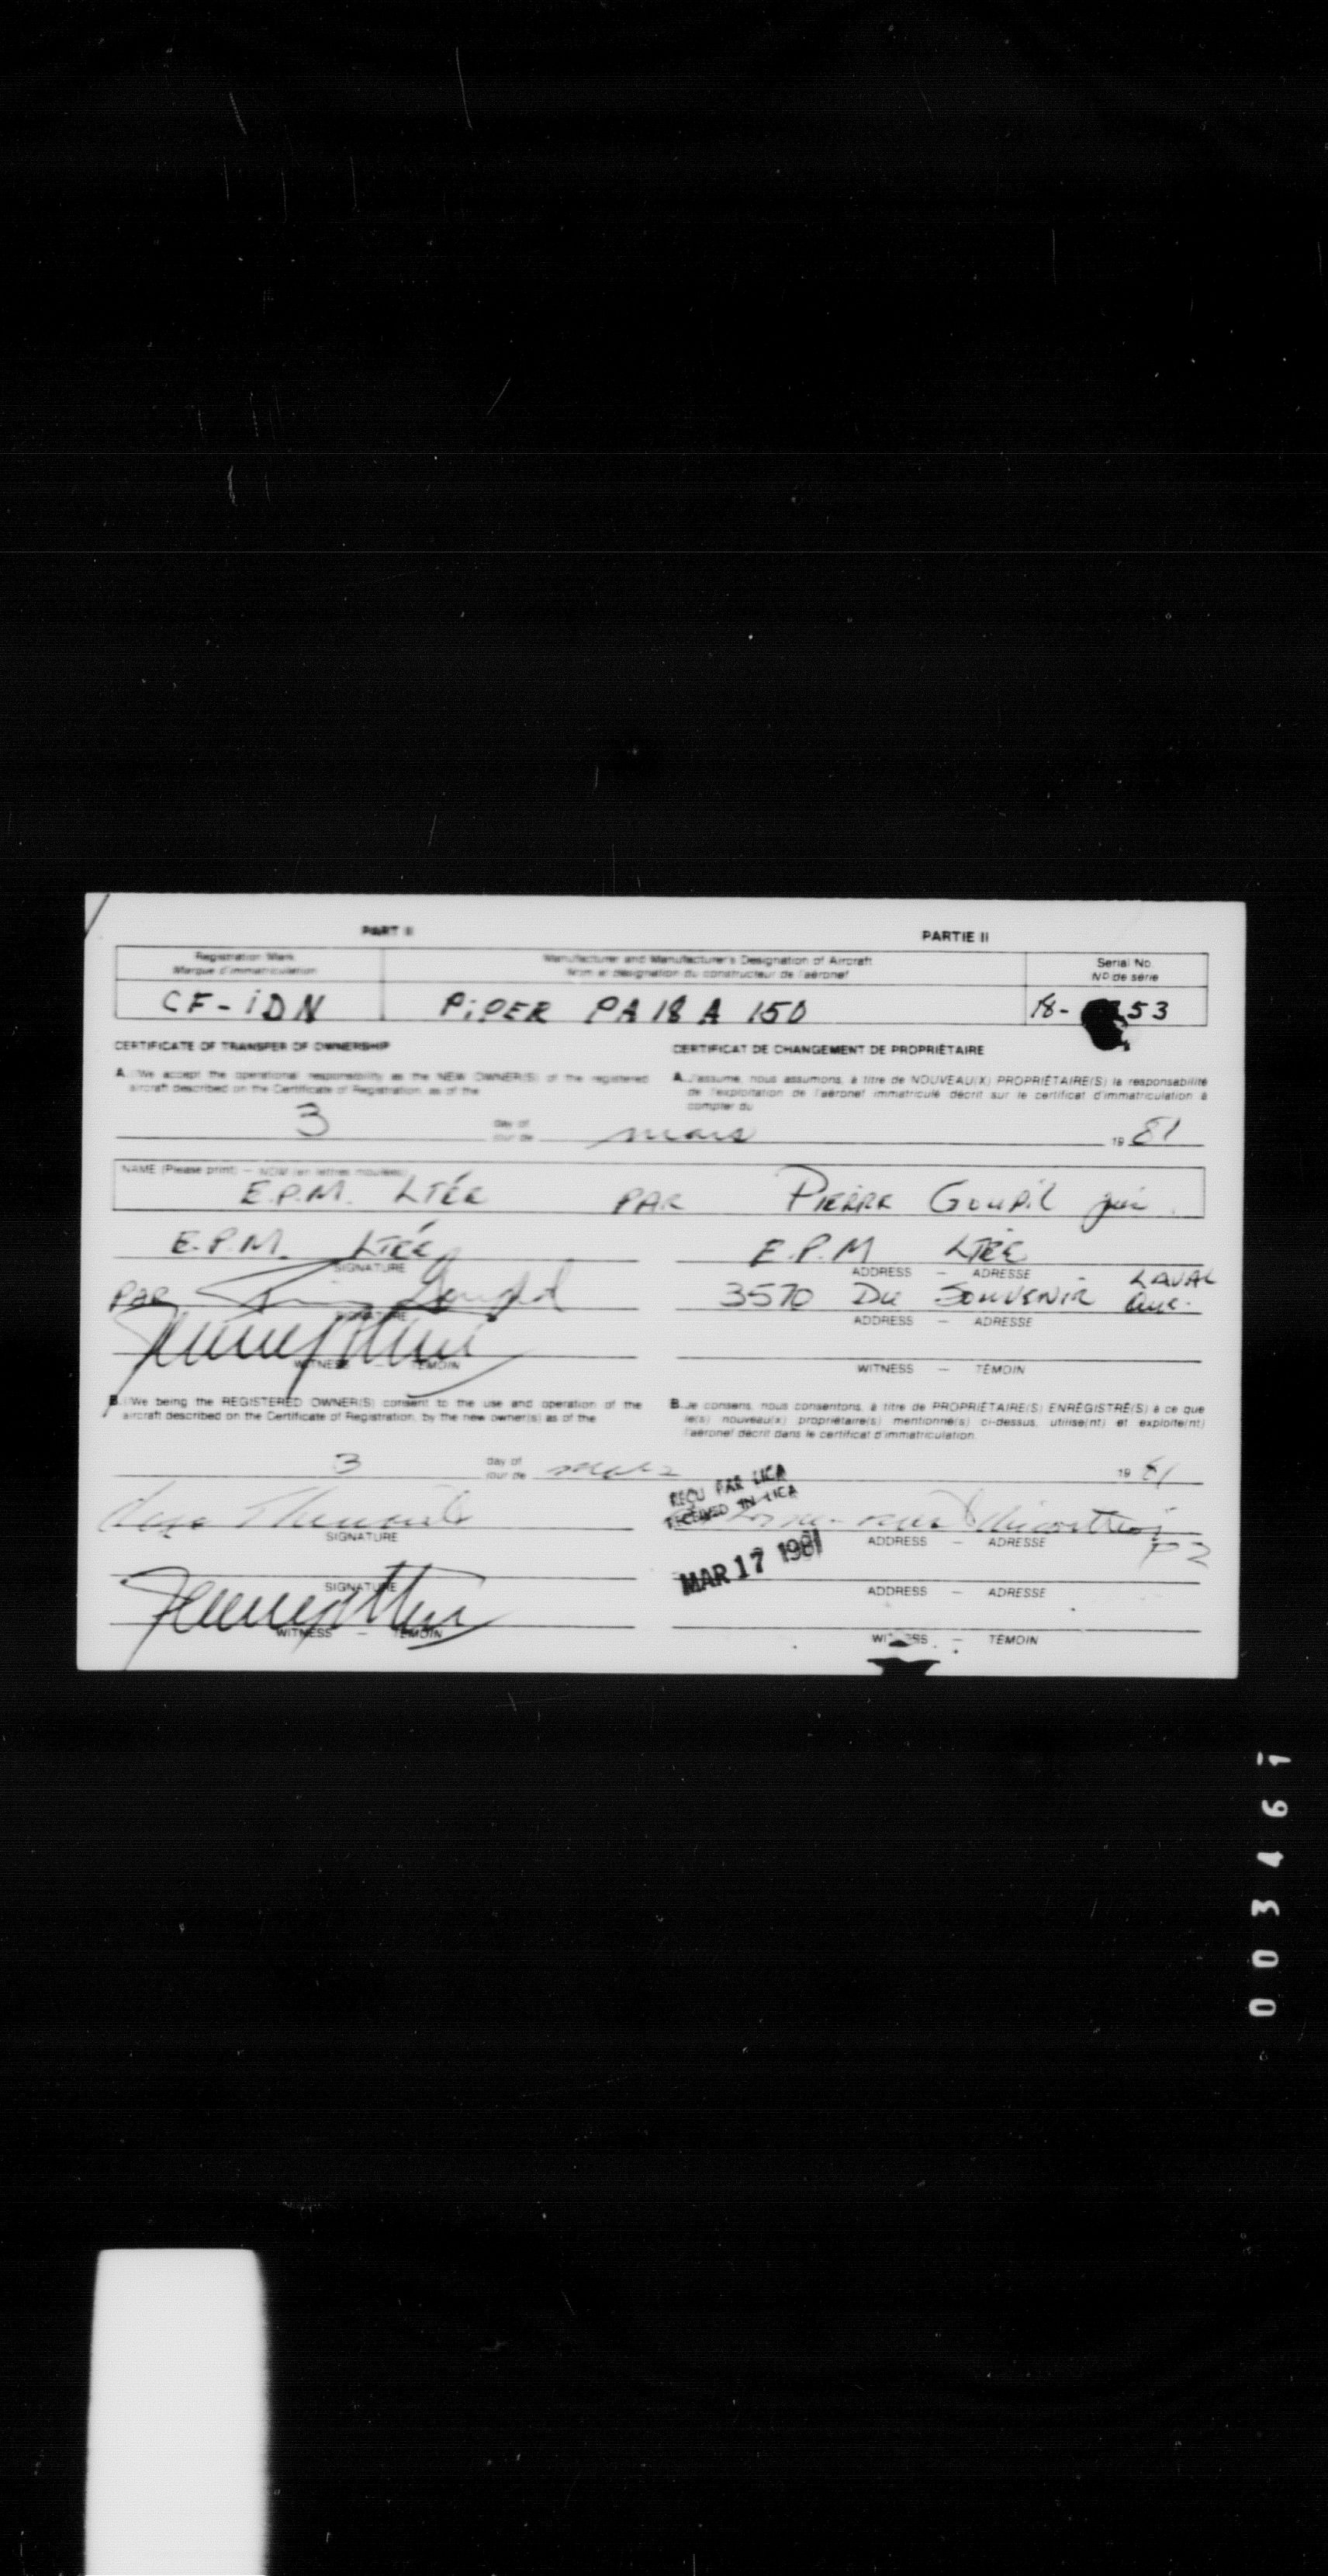 PART II PARTIE II
Registration Mark Manufacturer and Manufacturer's Designation of Aircraft Serial No.
Marque d'immatriculation Nom et désignation du constructeur de l'aéronef Nº de série
CF-iDN PiPER PA18A 150 18- 53
CERTIFICATE OF TRANSFER OF OWNERSHIP
CERTIFICAT DE CHANGEMENT DE PROPRIÉTAIRE
A. I/We accept the operational responsibility as the NEW OWNER(S) of the registered
aircraft described on the Certificate of Registration as of the
A. J'assume, nous assumons, à titre de NOUVEAU(X) PROPRIÉTAIRE(S) la responsabilité
de l'exploitation de l'aéronef immatriculé décrit sur le certificat d'immatriculation à
compter du
3 day of mars 19 81
jour de
NAME (Please print) — NOM (en lettres moulées)
E.P.M. LTÉE PAR PIERRE GOUPIL
E.P.M. LTÉE E.P.M LTÉE
SIGNATURE ADDRESS — ADRESSE
PAR 3570 DU SOUVENIR LAVAL
Que.
SIGNATURE ADDRESS — ADRESSE
WITNESS — TÉMOIN WITNESS — TÉMOIN
B. I/We being the REGISTERED OWNER(S) consent to the use and operation of the
aircraft described on the Certificate of Registration, by the new owner(s) as of the
B. Je consens, nous consentons, à titre de PROPRIÉTAIRE(S) ENREGISTRÉ(S) à ce que
le(s) nouveau(x) propriétaire(s) mentionné(s) ci-dessus, utilise(nt) et exploite(nt)
l'aéronef décrit dans le certificat d'immatriculation.
3 day of mars 19 81
jour de
REÇU PAR LICA
RECEIVED IN LICA
SIGNATURE ADDRESS — ADRESSE
MAR 17 1981
SIGNATURE ADDRESS — ADRESSE
WITNESS — TÉMOIN WITNESS — TÉMOIN
003461